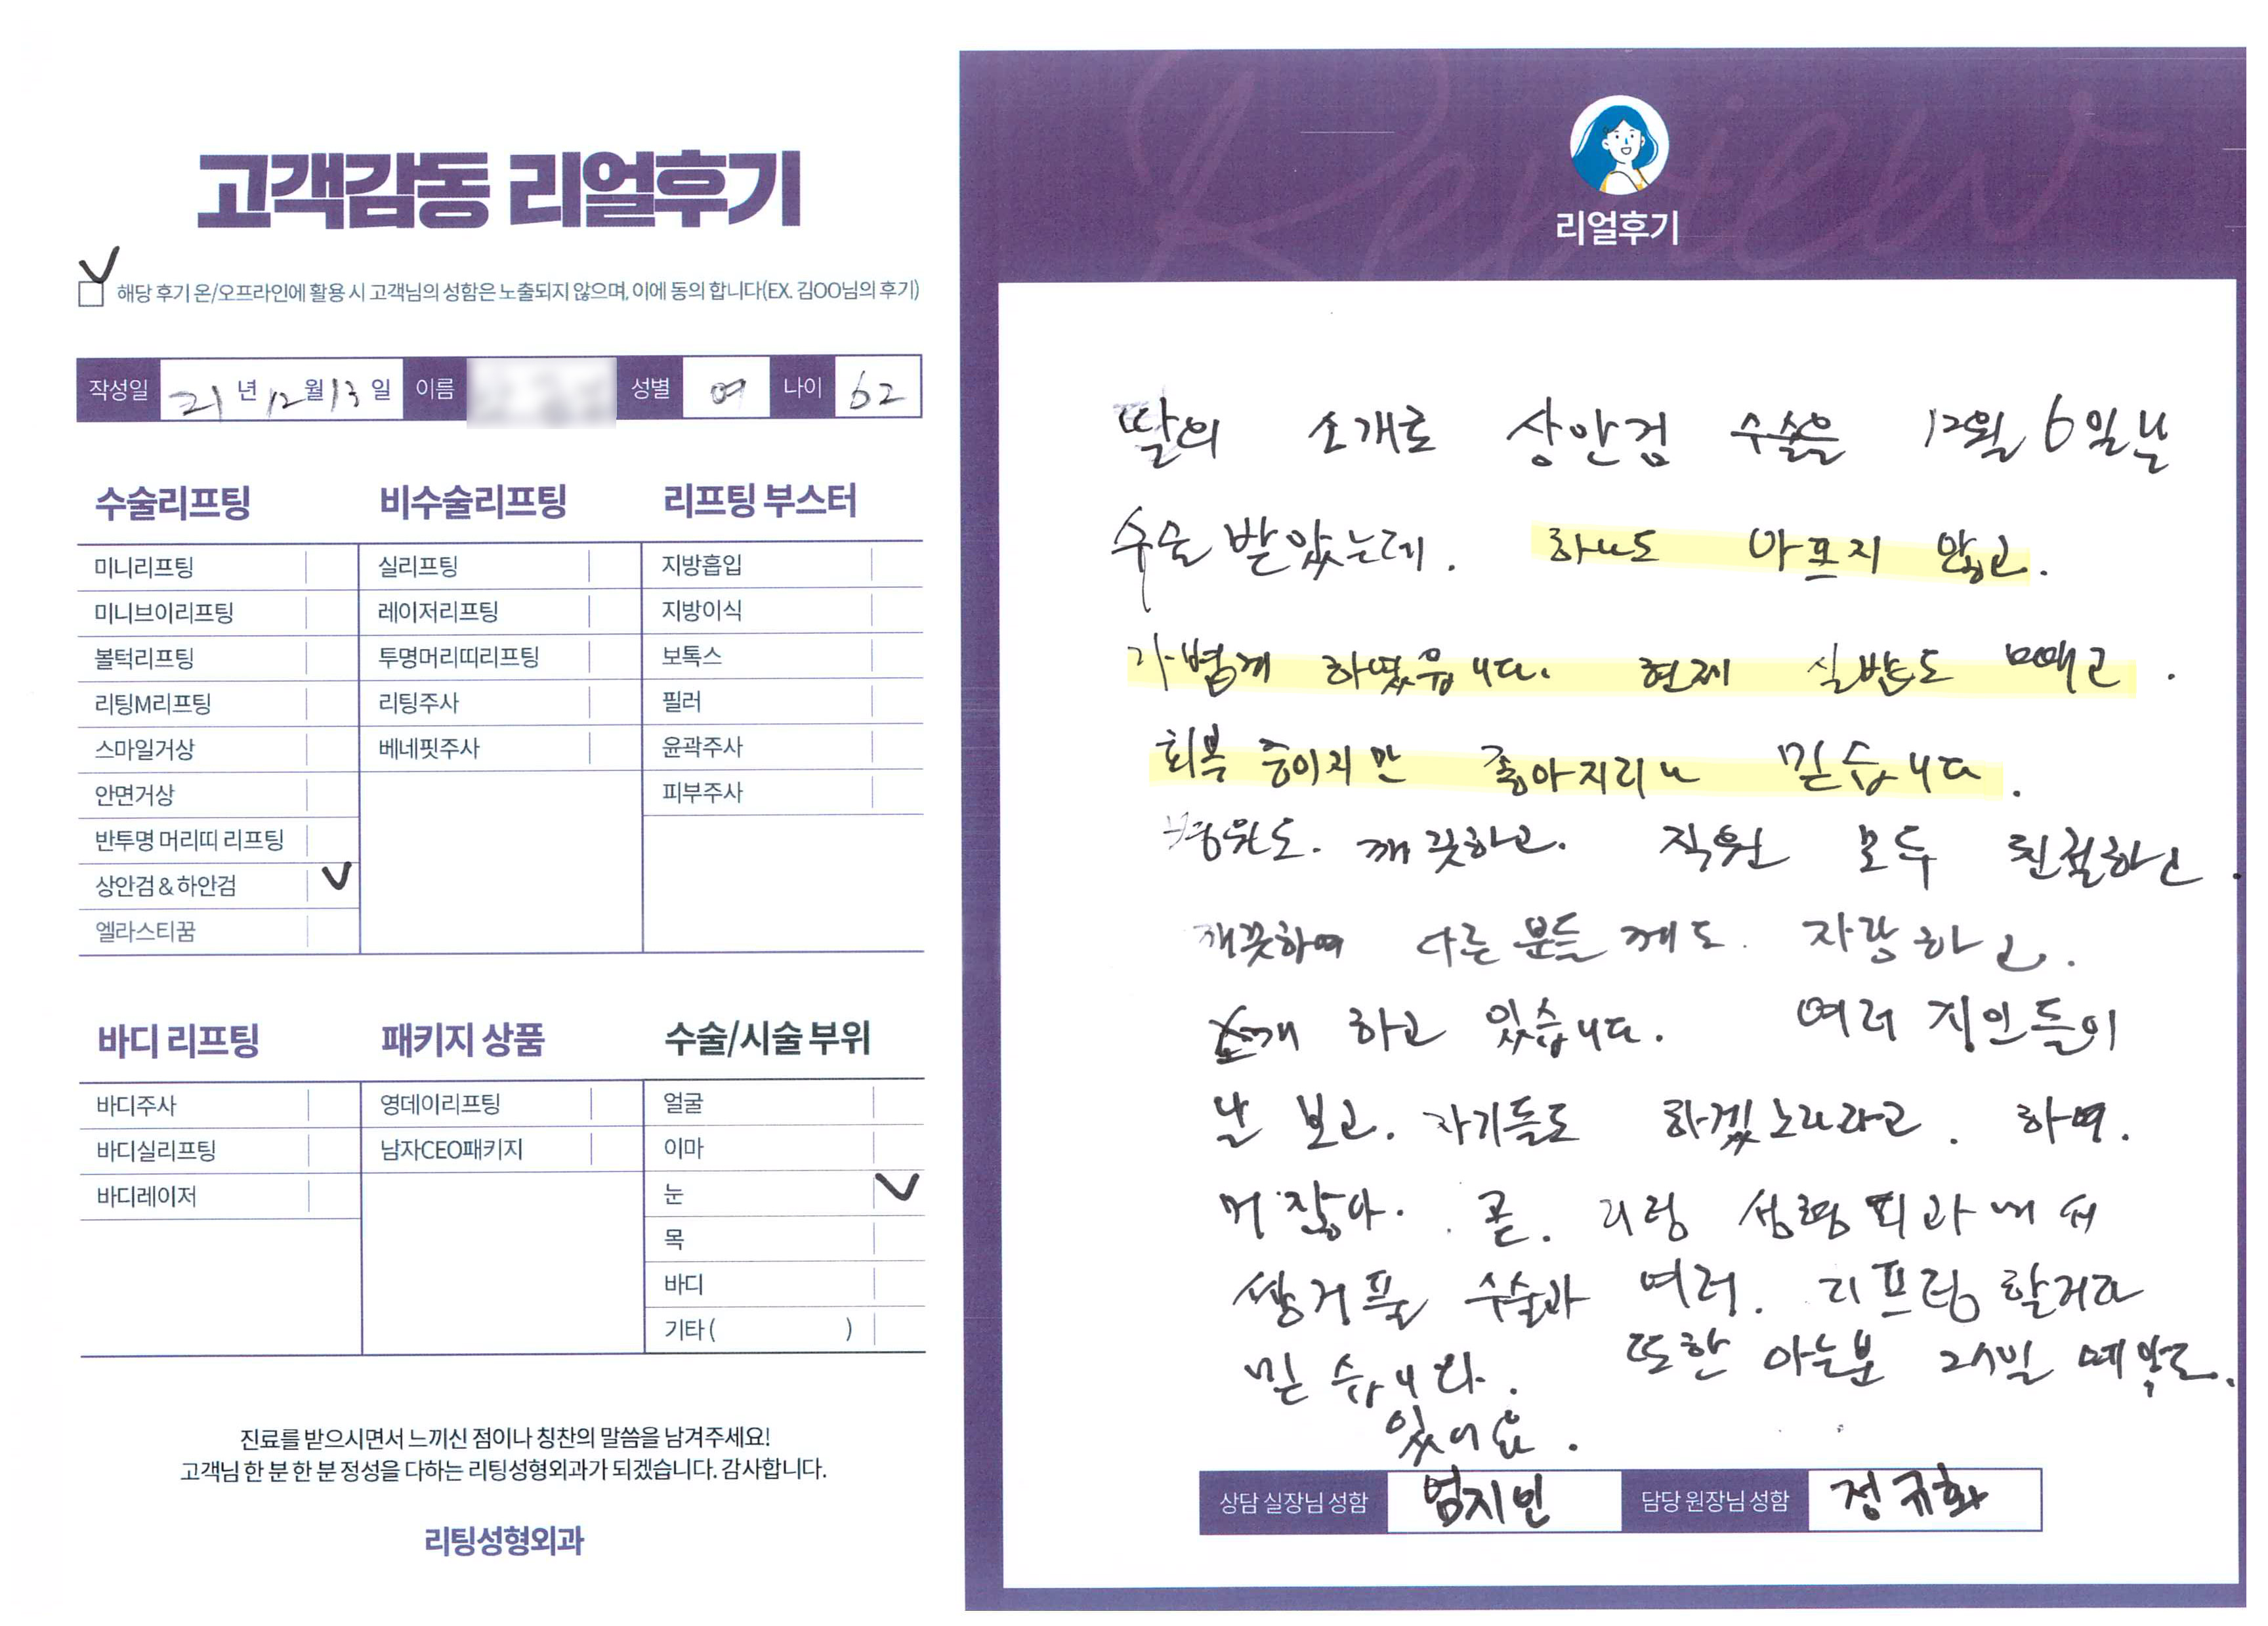 고객감동 리얼후기
해당 후기 온/오프라인에 활용 시 고객님의 성함은 노출되지 않으며, 이에 동의 합니다(EX. 김OO님의 후기)
작성일 21년 12월 13일 이름 성별 여 나이 62
수술리프팅
미니리프팅
미니브이리프팅
볼턱리프팅
리팅M리프팅
스마일거상
안면거상
반투명 머리띠 리프팅
상안검 & 하안검
엘라스티꿈
비수술리프팅
실리프팅
레이저리프팅
투명머리띠리프팅
리팅주사
베네핏주사
리프팅 부스터
지방흡입
지방이식
보톡스
필러
윤곽주사
피부주사
바디 리프팅
바디주사
바디실리프팅
바디레이저
패키지 상품
영데이리프팅
남자CEO패키지
수술/시술 부위
얼굴
이마
눈
목
바디
기타 ( )
진료를 받으시면서 느끼신 점이나 칭찬의 말씀을 남겨주세요!
고객님 한 분 한 분 정성을 다하는 리팅성형외과가 되겠습니다. 감사합니다.
리팅성형외과
Review
리얼후기
딸의 소개로 상안검 수술을 12월 6일날
수술 받았는데. 하나도 아프지 않고.
가볍게 하였읍니다. 현제 실밥도 빼고.
회복 중이지만 좋아지리나 믿습니다.
병원도. 깨끗하고. 직원 모두 친절하고.
깨끗하여 다른 분들께도. 자랑하고.
소개 하고 있습니다. 여러 지인들이
날 보고. 자기들도 하겠노라라고. 하여.
곧. 리팅 성형외과에서
쌍거풀 수술과 여러. 리프팅 할거라
믿습니다. 또한 아는분 예약도.
있어요.
상담 실장님 성함 엄지인 담당 원장님 성함 정규화